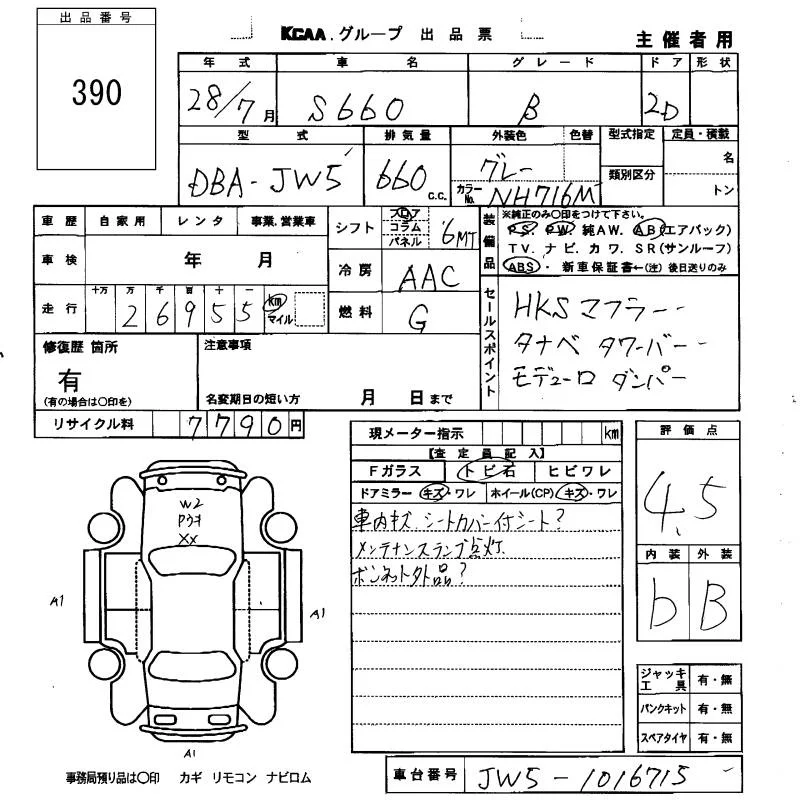 出品番号
390
KCAA.グループ 出品票
主催者用
年式 車名 グレード ドア 形状
28/7月 S660 β 2D
型式 排気量 外装色 色替 型式指定 定員・積載
DBA-JW5 660 C.C. グレー 名
類別区分
カラーNo. NH716M トン
車歴 自家用 レンタ 事業.営業車
シフト フロア コラム パネル 6MT
装備品 ※純正のみ○印をつけて下さい。
PS. PW. 純AW. AB(エアバック)
TV. ナビ. カワ. SR(サンルーフ)
ABS. 新車保証書←(注) 後日送りのみ
車検 年 月
冷房 AAC
走行 十万 万 千 百 十 一
26955 km マイル
燃料 G
セールスポイント
HKSマフラー
タナベ タワーバー
モデューロ ダンパー
修復歴 箇所 注意事項
有
(有の場合は○印を) 名変期日の短い方 月 日まで
リサイクル料 7790円
現メーター指示 km
【査定員記入】
Fガラス トビ石 ヒビワレ
ドアミラー キズ・ワレ ホイール(CP) キズ・ワレ
車内キズ シートカバー付シート?
メンテナンスランプ点灯
ボンネット外品?
評価点
4.5
内装 外装
b B
W2
Pウキ
XX
A1
A1
A1
ジャッキ工具 有・無
パンクキット 有・無
スペアタイヤ 有・無
事務局預り品は○印 カギ リモコン ナビロム
車台番号 JW5-1016715